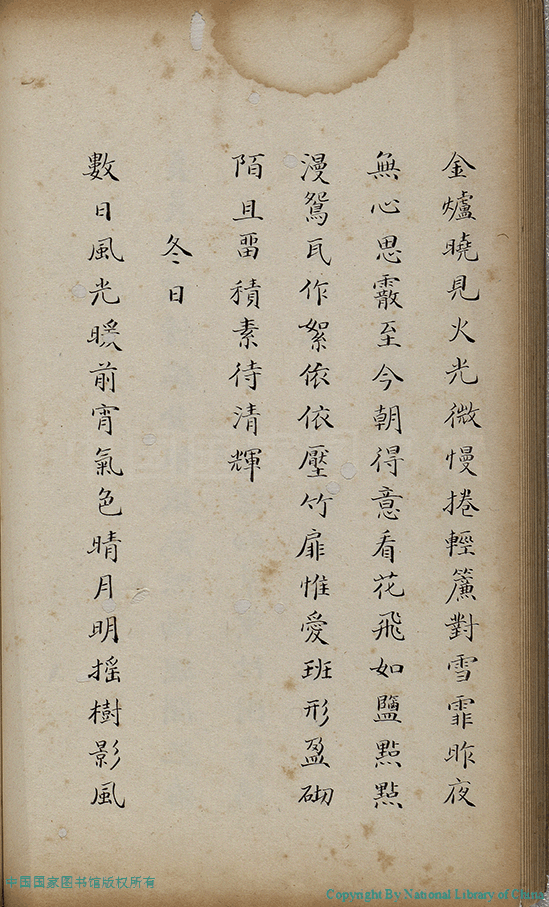 金爐曉見火光微慢捲輕簾對雪霏昨夜
無心思霰至今朝得意看花飛如鹽點點
漫鴛瓦作絮依依壓竹扉惟愛班形盈砌
陌且畱積素待清輝
冬日
數日風光暖前宵氣色晴月明摇樹影風
中国国家图书馆版权所有
Copyright By National Library of China